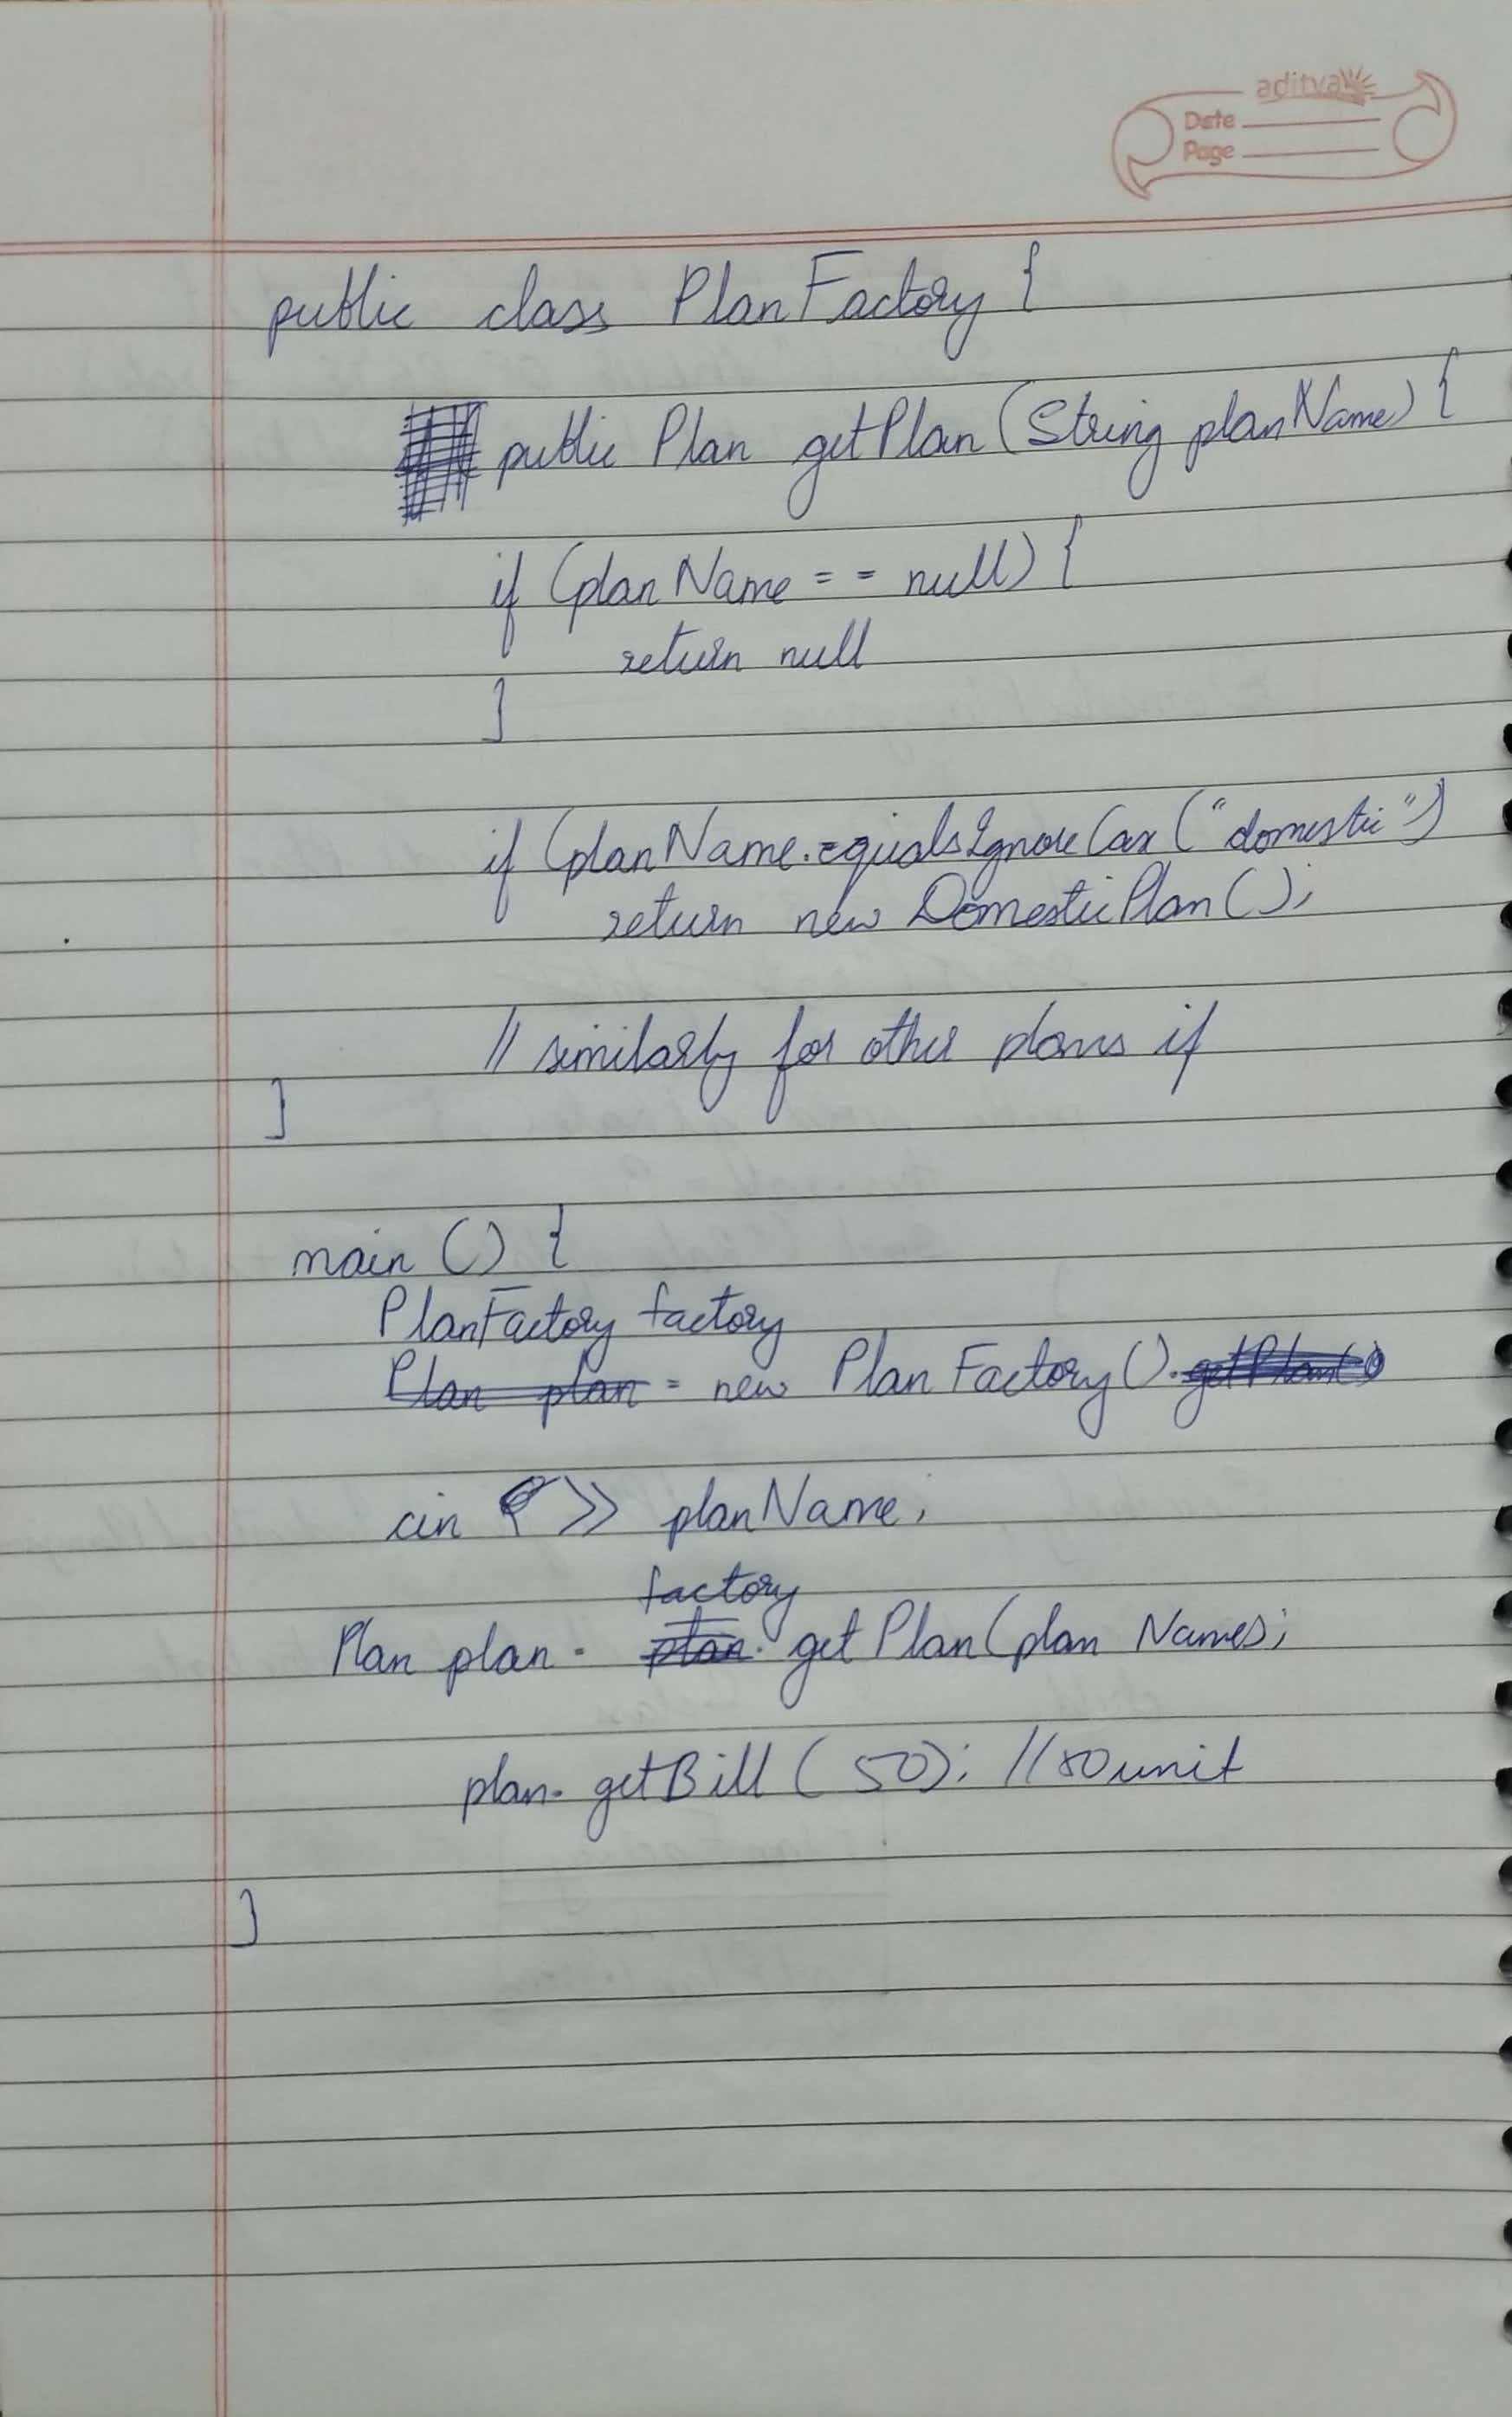 aditya
Date
Page
public class PlanFactory {
public Plan getPlan (String planName) {
if (planName == null) {
return null
}
if (planName.equalsIgnoreCase ("domestic")
return new DomesticPlan();
// similarly for other plans if
}
main () {
PlanFactory factory
Plan plan = new PlanFactory(). getPlan()
cin >> planName;
factory
Plan plan = plan. getPlan(plan Name);
plan. getBill ( 50); // 50 unit
}